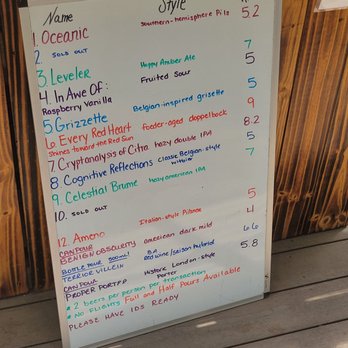 Name Style
1. Oceanic Southern-hemisphere Pils 5.2
2. SOLD OUT
3. Leveler Hoppy Amber Ale 5
4. In Awe Of: Fruited Sour 7
Raspberry Vanilla
5. Grizzette Belgian-inspired grisette 5
6 Every Red Heart foeder-aged doppelbock 9
Shines toward the Red Sun 8.2
7 Cryptanalysis of Citra hazy double IPA
8 Cognitive Reflections Classic Belgian-style 5
witbier
9. Celestial Brume hazy american IPA 7
10. SOLD OUT
12. Ameno Italian-style Pilsner 5
CAN POUR
BENIGN OBSCURITY american dark mild 4
BOTTLE POUR 500ml! BA
TERRIOR VILLEIN Red wine/saison hybrid 6.6
CAN POUR Historic London-style 5.8
PROPER PORTER Porter
* 2 beers per person per transaction
* NO FLIGHTS Full and Half Pours Available
PLEASE HAVE IDS READY